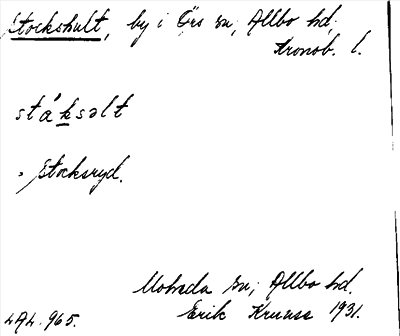 Stockshult, by i Örs sn; Allbo hd;
Kronob. l.
stáksəlt
Stocksryd.
Moheda sn; Allbo hd.
Erik Kruuse 1931.
LAL. 965.